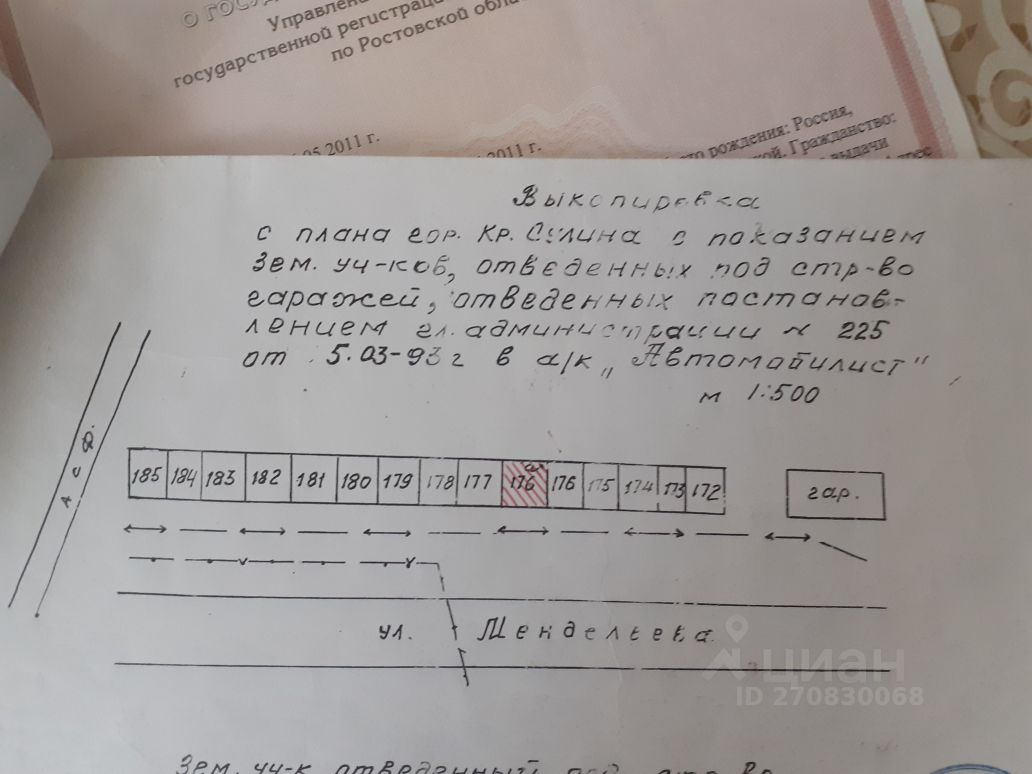 О ГОСУ
Управлен
государственной регистрац
по Ростовской обла
.05 2011 г.
2011 г.
то рождения: Россия,
кой. Гражданство:
выдачи
Выкопировка
с плана гор. Кр. Сулина с показанием
зем. уч-ков, отведенных под стр-во
гаражей, отведенных постанов-
лением гл. администрации № 225
от 5.03-93 г в а/к „Автомобилист"
м 1:500
185 184 183 182 181 180 179 178 177 176а 176 175 174 173 172
гар.
ул. Менделеева
циан
ID 270830068
Зем. уч-к отведенный под стр-во